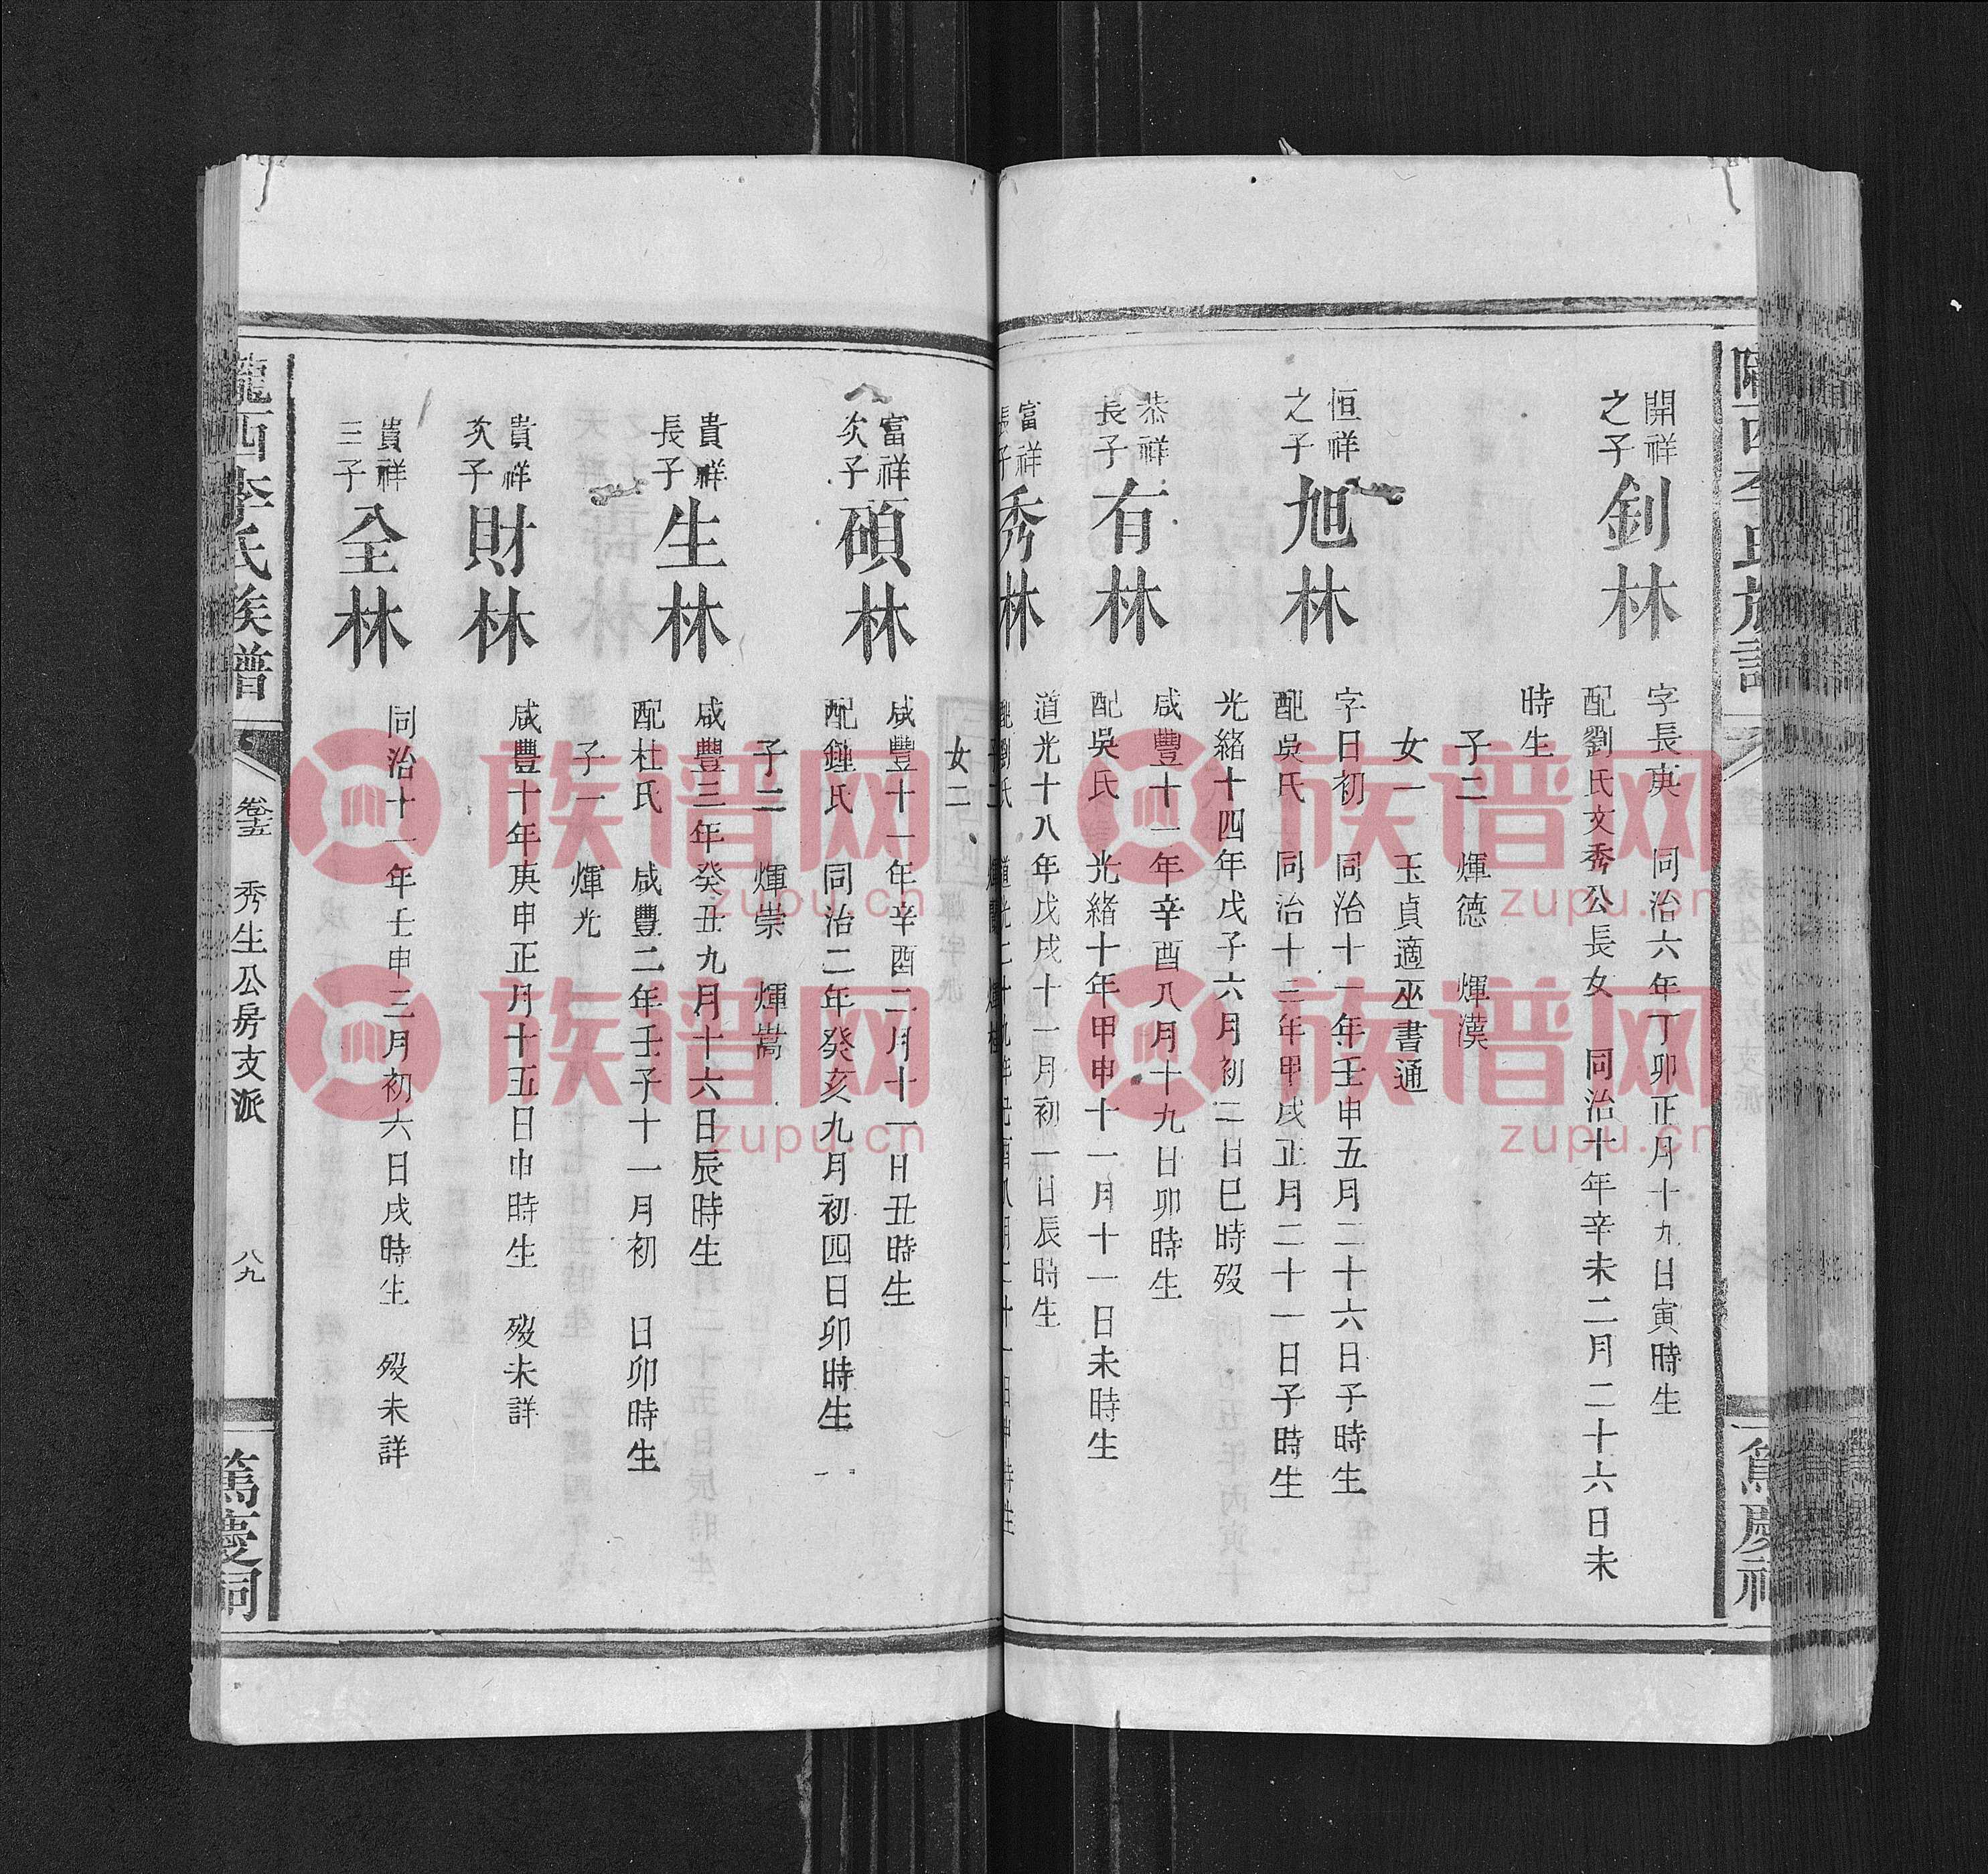 開祥
之子
釗林
字長庚 同治六年丁卯正月十九日寅時生
配劉氏文秀公長女 同治十年辛未二月二十六日未
時生
子二 煇德 煇漢
女一 玉貞適巫書通
恒祥
之子
旭林
字日初 同治十一年壬申五月二十六日子時生
配吳氏 同治十三年甲戌正月二十一日子時生
光緒十四年戊子六月初二日巳時歿
恭祥
長子
有林
咸豐十一年辛酉八月十九日卯時生
配吳氏 光緒十年甲申十一月十一日未時生
富祥
長子
秀林
道光十八年戊戌十一月初一日辰時生
女二
富祥
次子
碩林
咸豐十一年辛酉二月十一日丑時生
配鍾氏 同治二年癸亥九月初四日卯時生
子二 煇崇 煇嵩
貴祥
長子
生林
咸豐三年癸丑九月十六日辰時生
配杜氏 咸豐二年壬子十一月初 日卯時生
子一 煇光
貴祥
次子
財林
咸豐十年庚申正月十五日申時生 歿未詳
貴祥
三子
全林
同治十一年壬申三月初六日戌時生 歿未詳
隴西李氏族譜
卷五 秀生公房支派
八九
篤慶祠
族谱网
zupu.cn
族谱网
zupu.cn
族谱网
zupu.cn
族谱网
zupu.cn